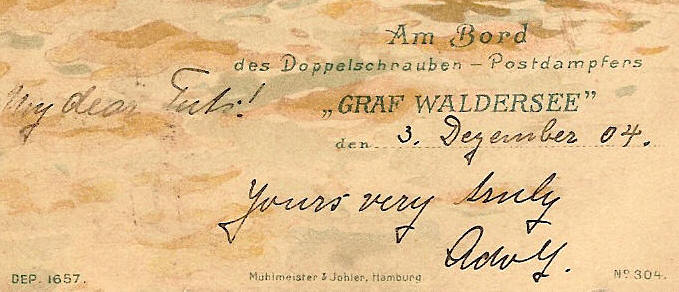 Am Bord
des Doppelschrauben - Postdampfers
„GRAF WALDERSEE”
My dear Tuts!
den 3. Dezember 04.
Yours very truly
Adolf.
DEP. 1657. Mühlmeister & Johler, Hamburg. No 304.